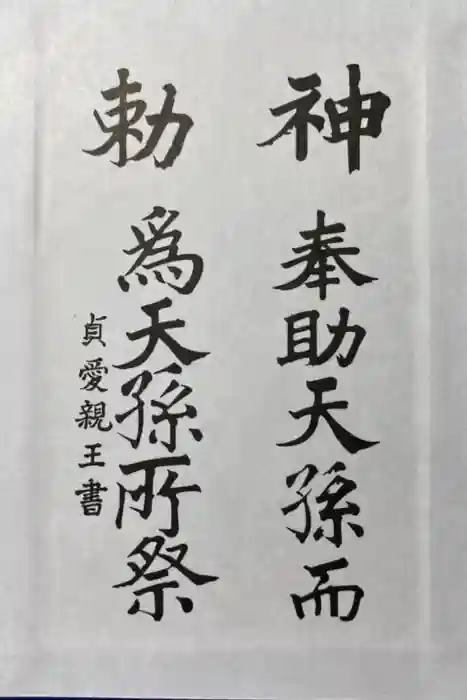 神 奉助天孫而
勅 為天孫所祭
貞愛親王書